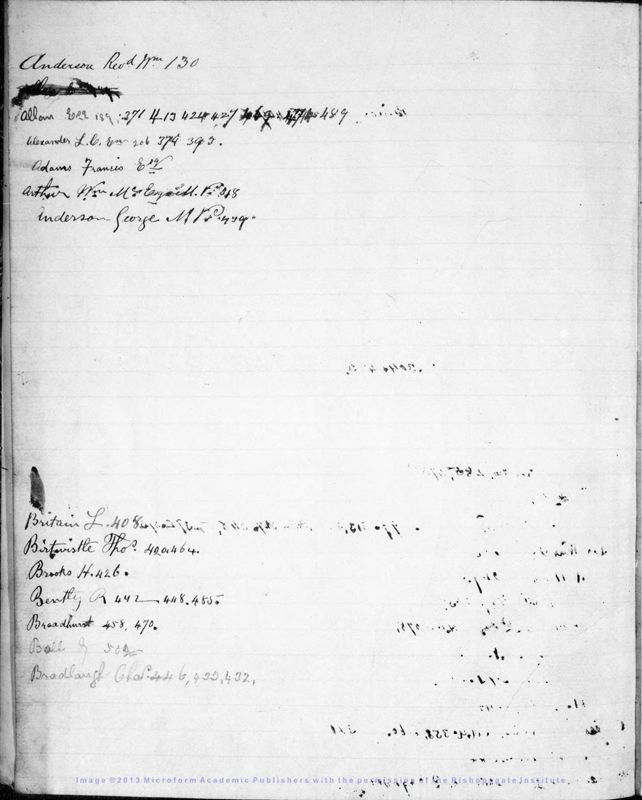 Anderson Revd Wm 130
Allan Esq 189 371 413 424 427 489
Alexander L. C. Esq 206 379 393.
Adams Francis Esqr
Arthur Wm Mc Esq M.P. 218
Anderson George M P. 439
Britain L. 408
Birtwistle Thos. 420 464.
Brooks H. 426.
Bently R 442 448. 455.
Broadhurst 458. 470.
Ball G 502
Bradlaugh Chas. 446, 433, 432,
Image ©2013 Microform Academic Publishers with the permission of the Bishopsgate Institute